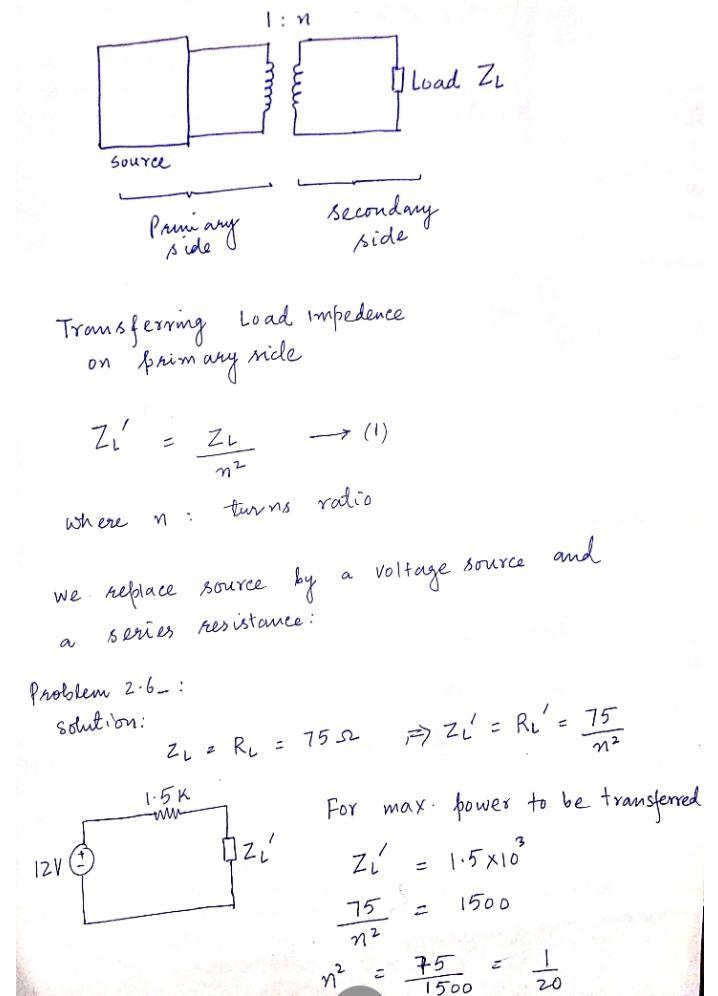 1 : n
Load ZL
source
Primary side
secondary side
Transferring Load impedence
on primary side
ZL' = ZL / n² → (1)
where n : turns ratio
we replace source by a voltage source and
a series resistance:
Problem 2.6 :
solution:
ZL = RL = 75 Ω ⇒ ZL' = RL' = 75 / n²
1.5K
12V
ZL'
For max. power to be transferred
ZL' = 1.5×10³
75 / n² = 1500
n² = 75 / 1500 = 1 / 20